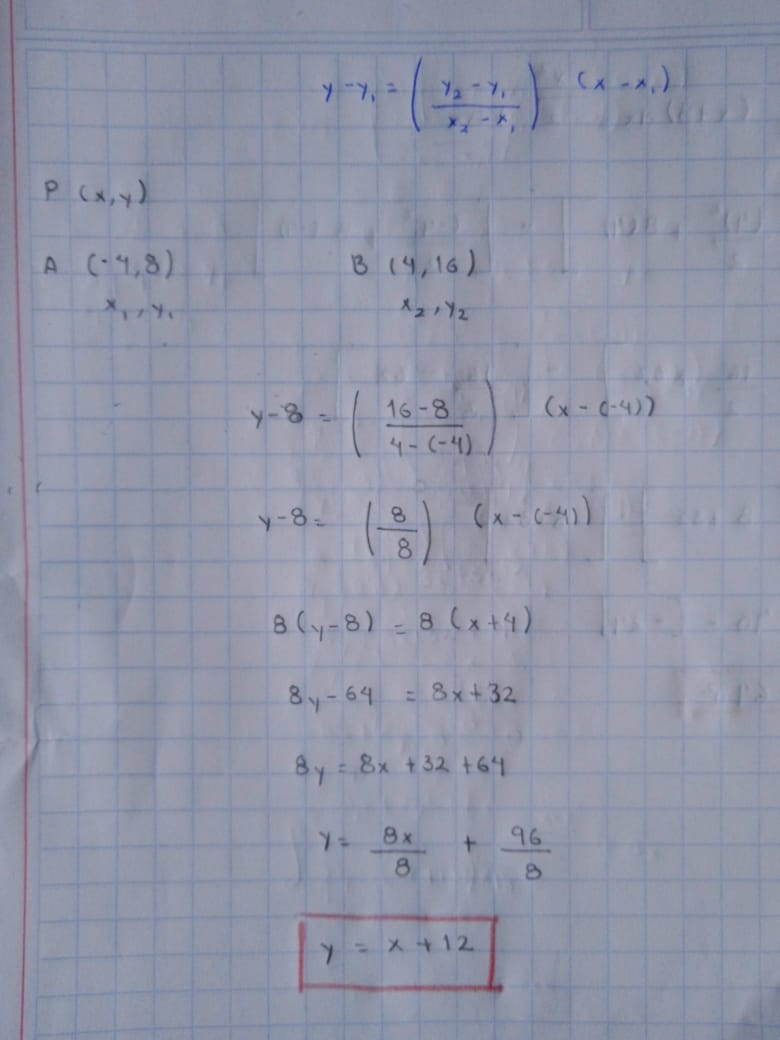 y - y₁ = ( (y₂ - y₁) / (x₂ - x₁) ) (x - x₁)
P (x, y)
A (-4, 8) B (4, 16)
x₁, y₁ x₂, y₂
y - 8 = ( (16 - 8) / (4 - (-4)) ) (x - (-4))
y - 8 = ( 8 / 8 ) (x - (-4))
8 (y - 8) = 8 (x + 4)
8y - 64 = 8x + 32
8y = 8x + 32 + 64
y = 8x / 8 + 96 / 8
y = x + 12